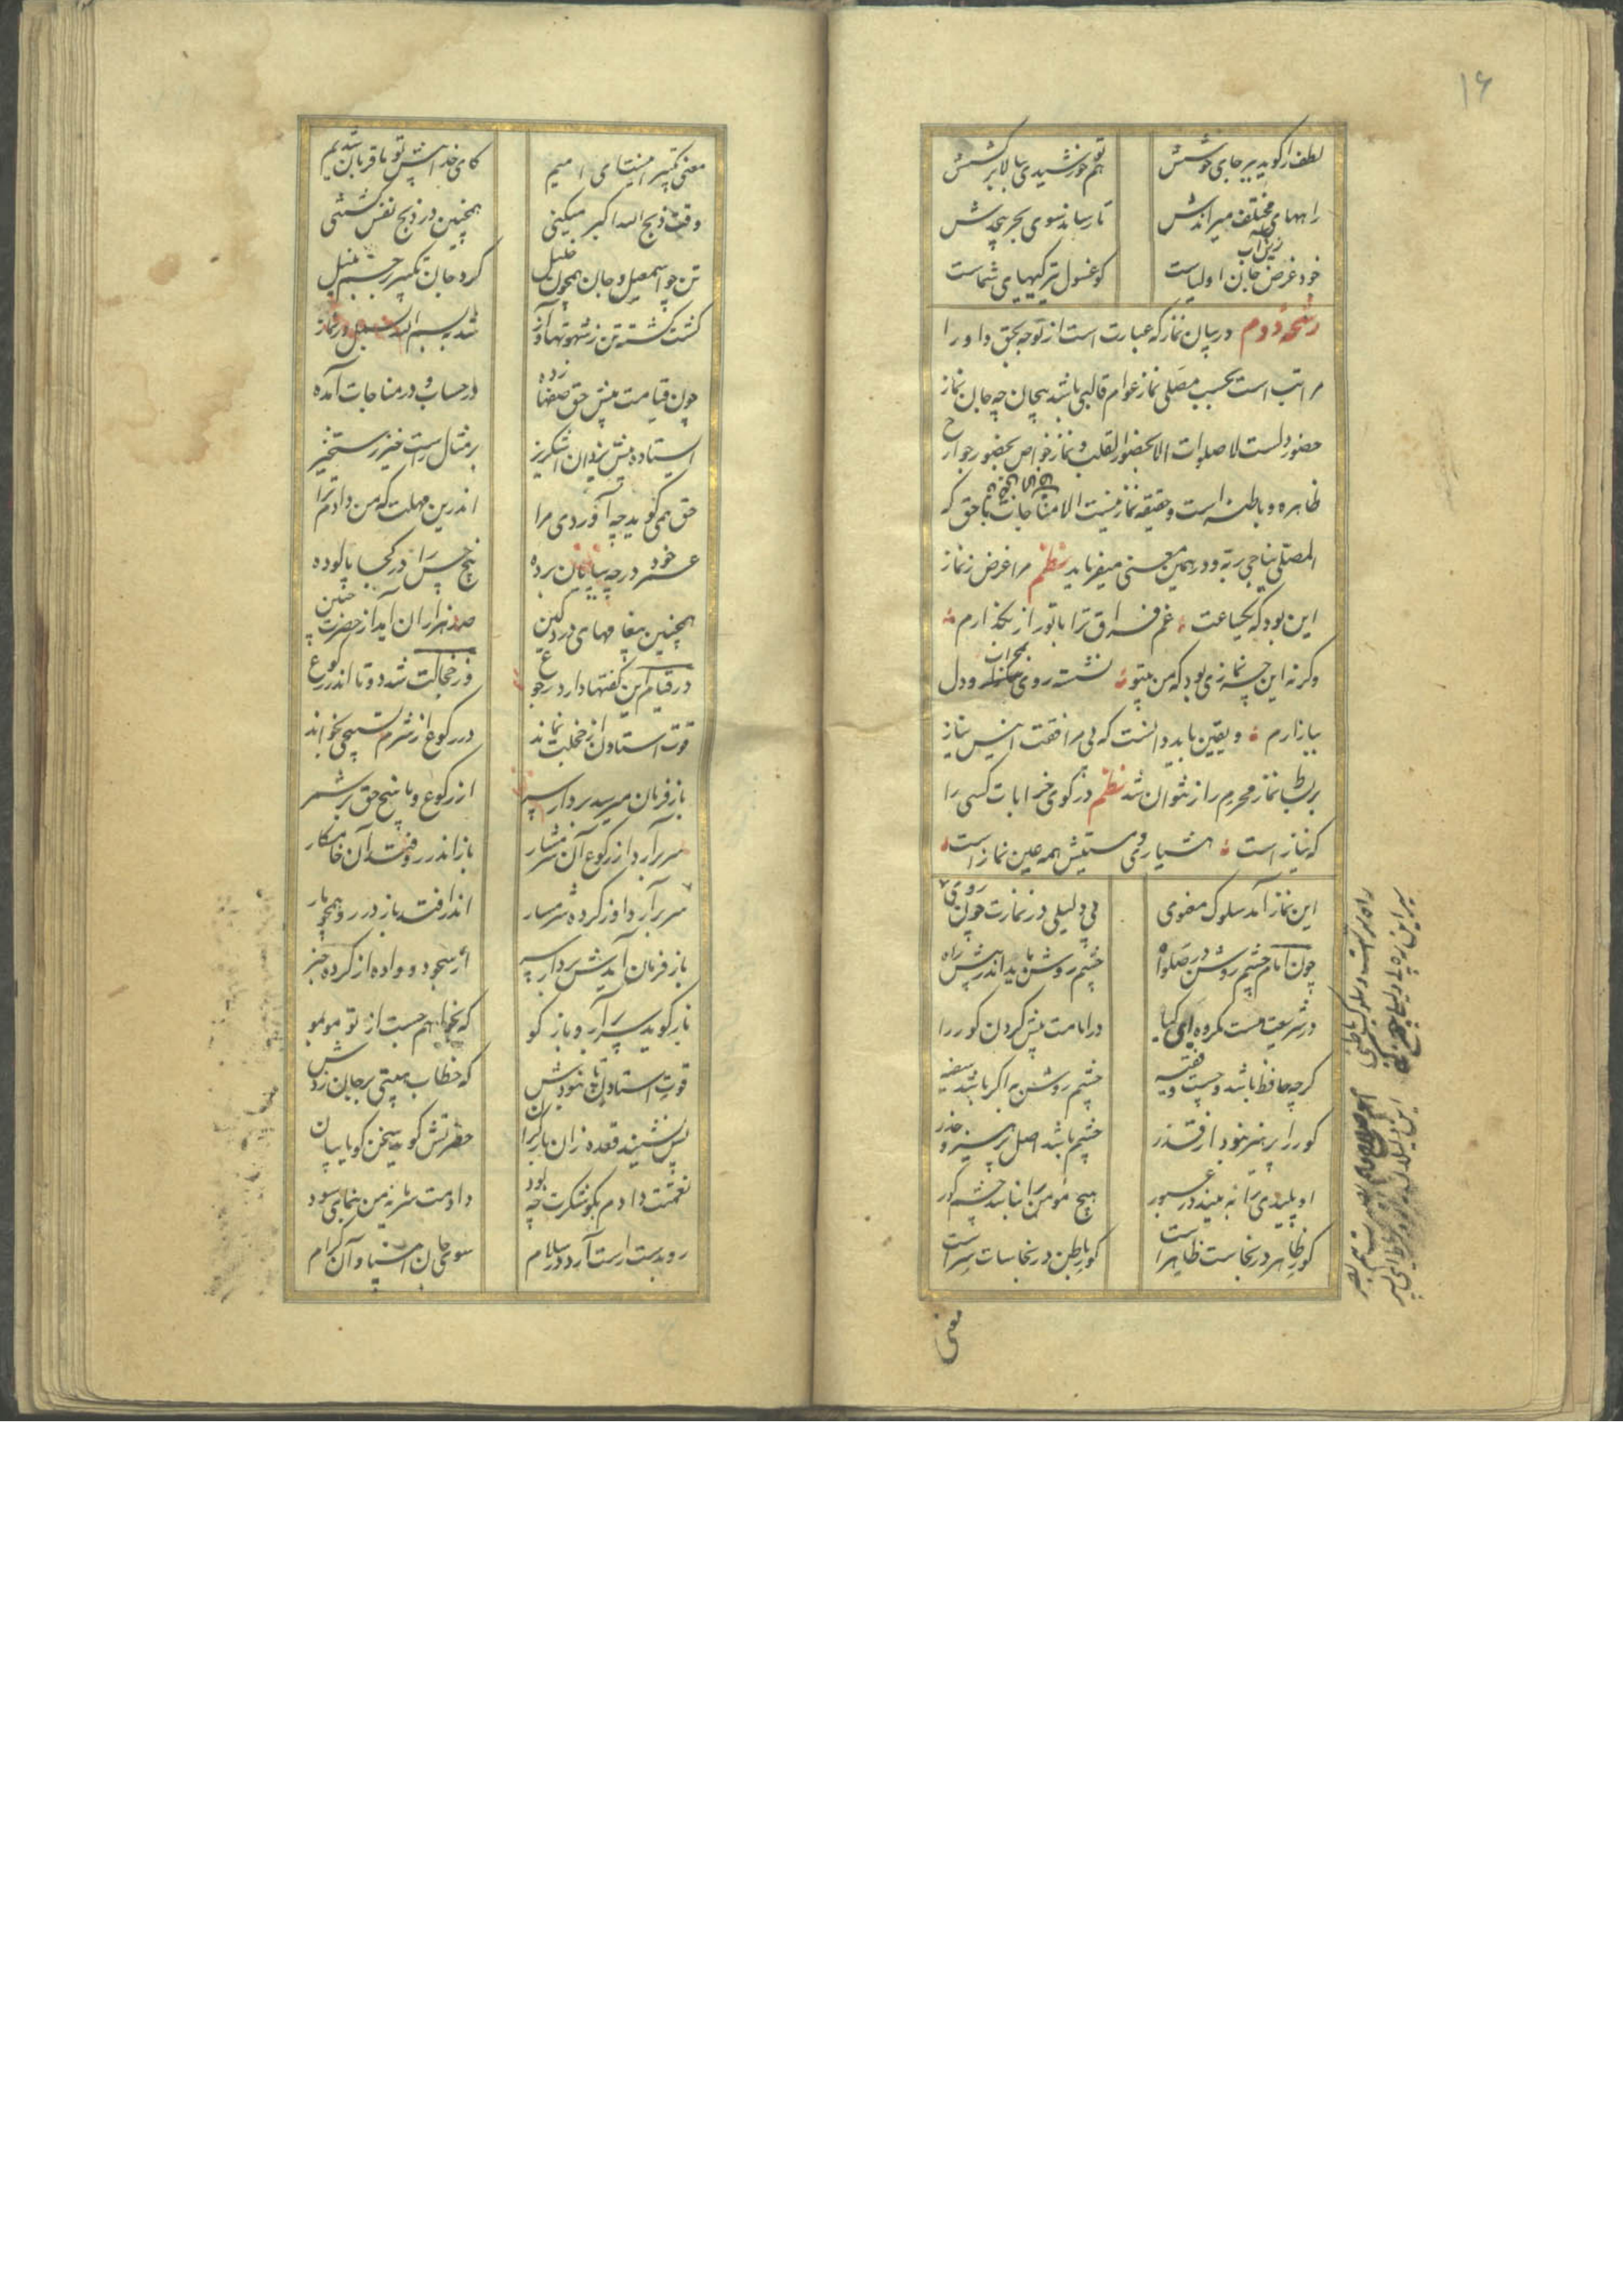 ۱۶
لطف ار گوید ببر جای خوشش
هم تو خورشیدی ببالا بر کشش
راههای مختلف میراندش
تا رساند سوی بحر بیحدش
خود غرض زین آب جان اولیاست
کو غسول تیرگیهای شماست
رشحه دوم در بیان نماز که عبارت است از توجه بحق و او را
مراتب است بحسب مصلی نماز عوام قالبی باشد بیجان چه جان نماز
حضور دلست لا صلوات الا بحضور القلب و نماز خواص بحضور جوارح
ظاهره و باطنه است و حقیقه نماز نیست الا مناجات با حق که
المصلی یناجی ربه و در همین معنی میفرماید نظم مرا غرض ز نماز
این بود که یکساعت غم فراق ترا با تو راز بگذارم
وگرنه این چه نمازی بود که من بیتو نشسته روی بمحراب و دل
ببازارم و یقین باید دانست که بی مرافقت انیس نیاز
بربط نماز محرم راز نتوان شد نظم در کوی خرابات کسی را
که نیاز است هشیاری و مستیش همه عین نماز است
این نماز آمد سلوک معنوی
بی دلیلی در نمازت چون روی
چون امام چشم روشن در صلوة
چشم روشن باید اندر پیش راه
در شریعت هست مکروه ای کیا
در امامت پیش کردن کور را
گرچه حافظ باشد و چست و فقیه
چشم روشن به اگر باشد سفیه
کور را پرهیز نبود از قذر
چشم باشد اصل پرهیز و حذر
او پلیدی را نه بیند در عبور
هیچ مؤمن را مبادا چشم کور
کور ظاهر در نجاست ظاهر است
کور باطن در نجاسات سر است
معنی
معنی تکبیر اینست ای امیم
کای خدا پیش تو ما قربان شدیم
وقت ذبح الله اکبر میکنی
همچنین در ذبح نفس کشتنی
تن چو اسمعیل و جان همچون خلیل
کرد جان تکبیر بر جسم نبیل
گشت کشته تن ز شهوتها و آز
شد به بسم الله بسمل در نماز
چون قیامت پیش حق صفها زده
در حساب و در مناجات آمده
ایستاده پیش یزدان اشکریز
بر مثال راست خیز رستخیز
حق همی گوید چه آوردی مرا
اندرین مهلت که من دادم ترا
عمر خود در چه بپایان برده
پنج حس را در کجا پالوده
همچنین پیغامهای درد کین
صد هزاران آید از حضرت چنین
در قیام این گفتها دارد رجوع
وز خجالت شد دوتا اندر رکوع
قوت استادن از خجلت نماند
در رکوع از شرم تسبیحی بخواند
باز فرمان میرسد بردار سر
از رکوع و پاسخ حق بر شمر
سر برآرد از رکوع آن شرمسار
باز اندر رو فتد آن خامکار
سر برآرد او ز کرده شرمسار
اندر افتد باز در رو همچو مار
باز فرمان آیدش بردار سر
از سجود و واده از کرده خبر
باز گوید سر برآر و باز گو
که بخواهم جست از تو مو بمو
قوت استادن پا نبودش
که خطاب هیبتی بر جان زدش
پس نشیند قعده زان بار گران
حضرتش گوید سخن گو با بیان
نعمتت دادم بگو شکرت چه بود
دادمت سرمایه من بنمای سود
رو بدست راست آرد در سلام
سوی جان انبیا و آن کرام